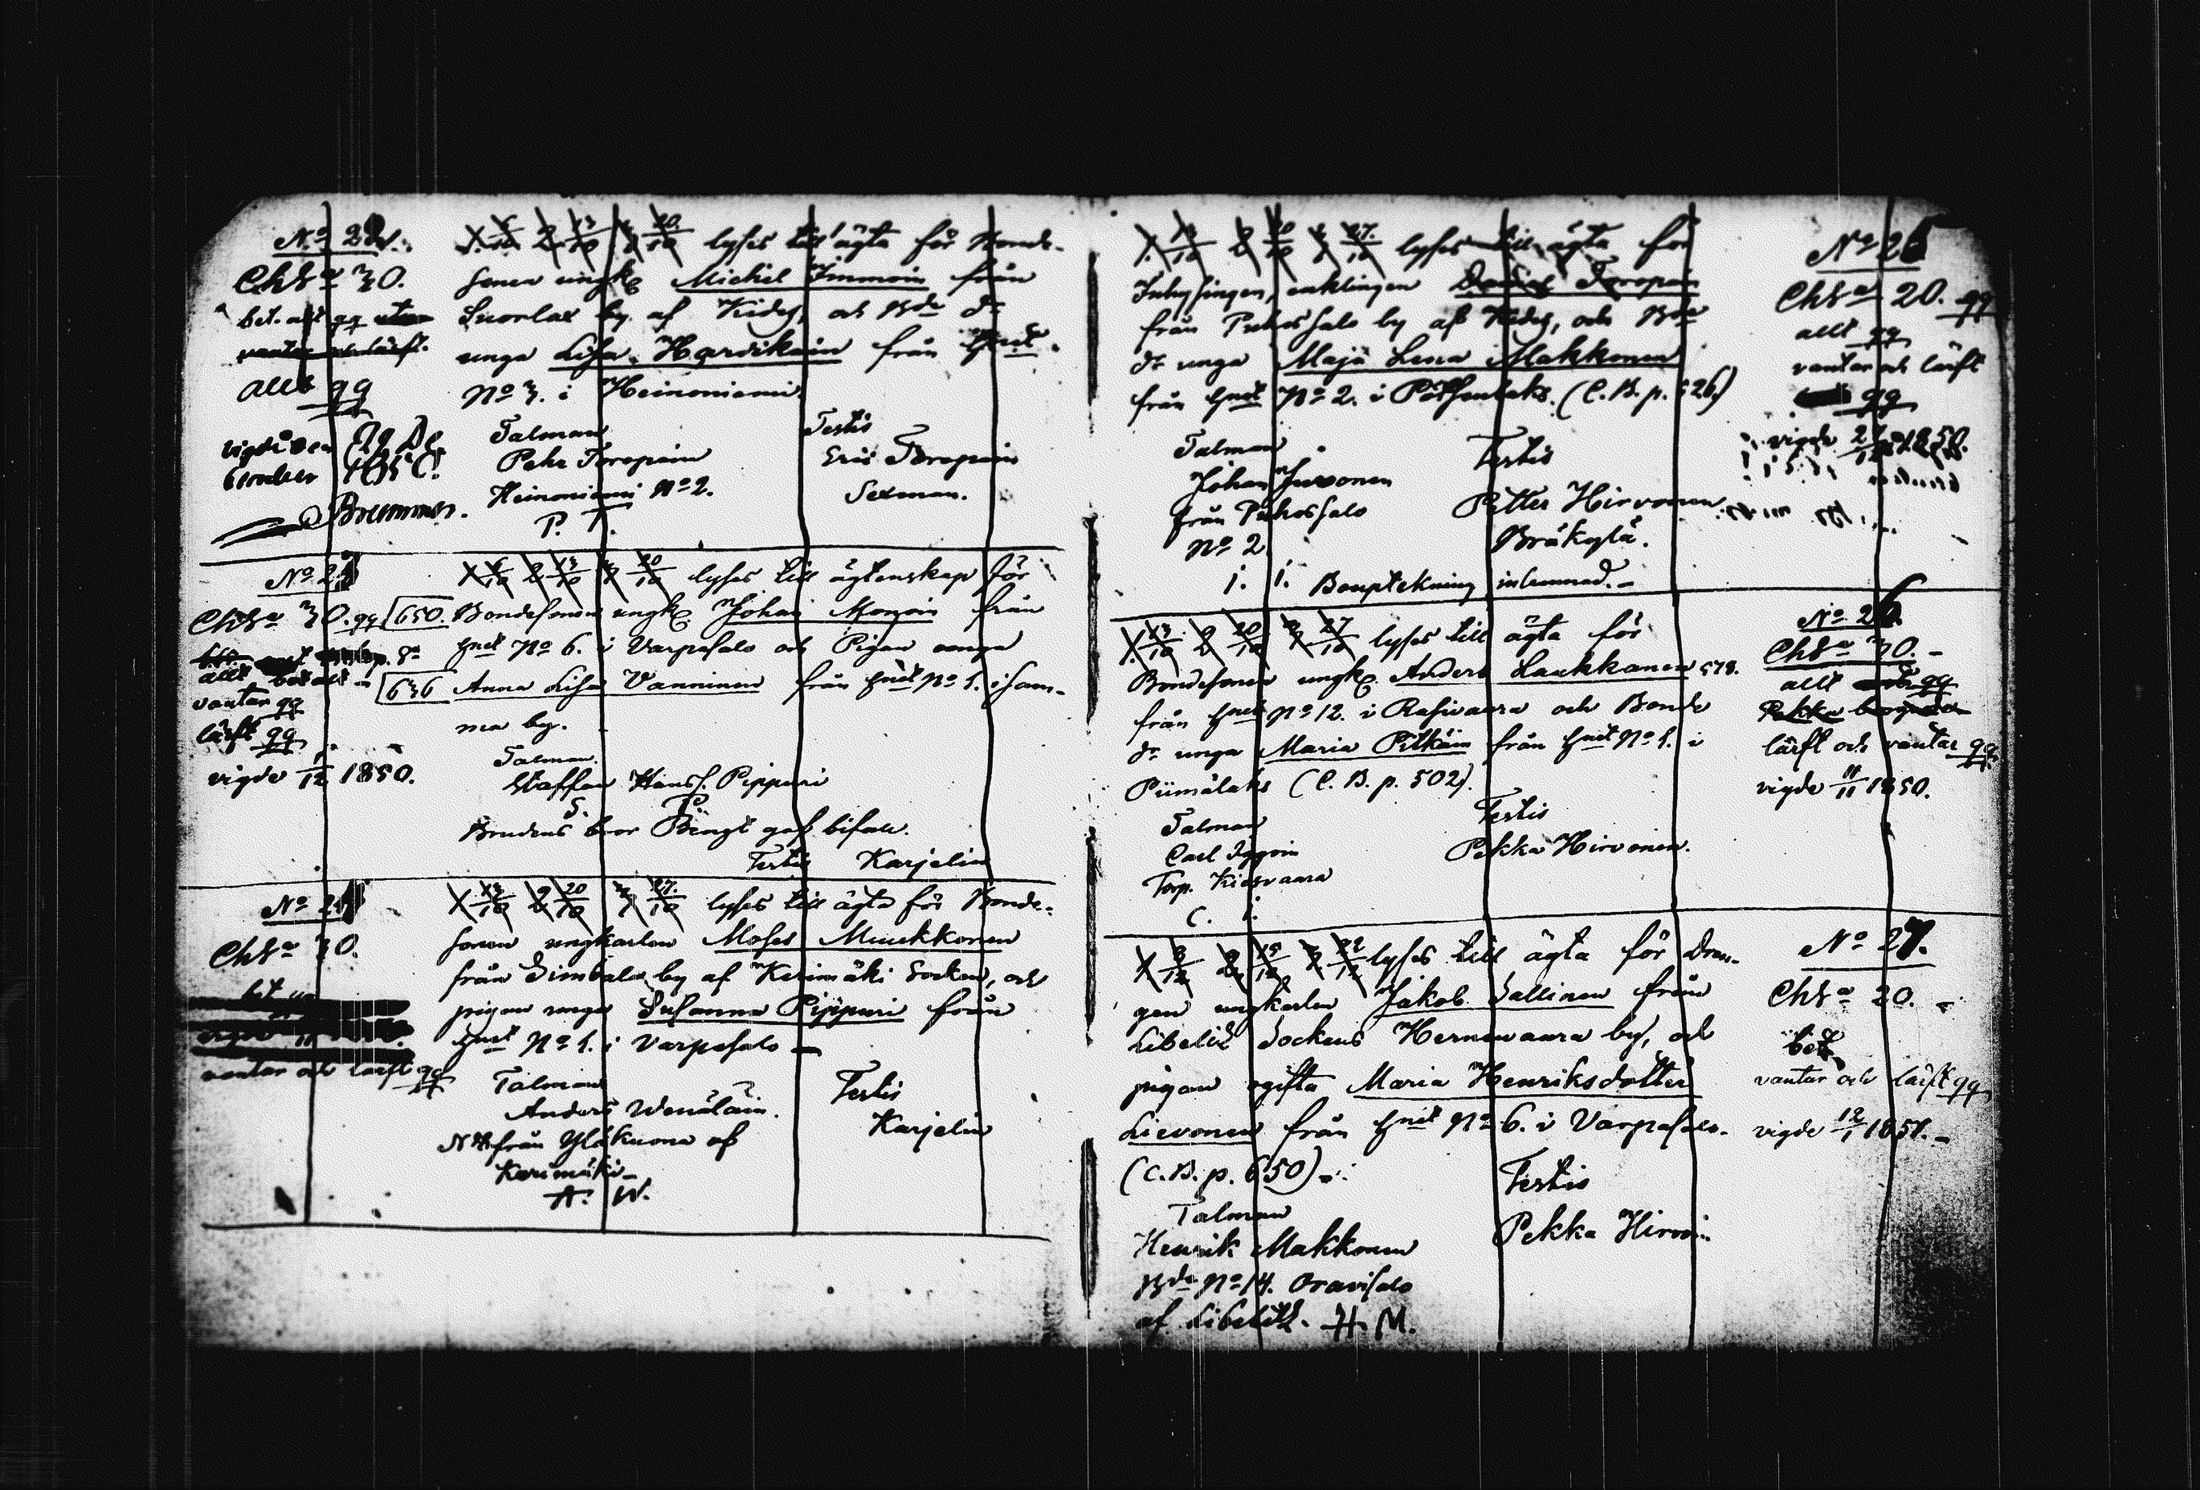 No 22.
Chta 30.
bet. allt qq
allt qq
vigde den 29 De
cember 1850.
Brummer.
X 6/10 2 13/10 3 20/10 lyses till ägta för Bonde-
sonen ungk. Michel Immoin från
Suorlax by af Kides, och Bde dr
unga Lisa Harvikain från Hmt
No 3. i Heinoniemi.
Talman
Pehr Toropain
Heinoniemi No 2.
P. T.
Testis
Eric Toropain
Sexman.
No 23
Chta 30. qq
allt betalt
vantar qq
lärft qq
vigde 1/12 1850.
X 6/10 2 13/10 3 20/10 lyses till ägtenskap för
650. Bondesonen ungk. Johan Monoin från
Hmt No 6. i Varpasalo och Pigan unga
636 Anna Lisa Vanninen från Hmt No 1. i sam-
ma by.
Talman
Staffan Hanss. Pippuri
S. P.
Brudens bror Bengt gaf bifall.
Testis Karjelin
No 24
Chta 30.
vantar och lärft qq
X 13/10 2 20/10 3 27/10 lyses till ägta för Bonde-
sonen ungkarlen Moses Muukkonen
från Simbala by af Kerimäki Socken, och
pigan unga Susanna Pippuri från
Hmt No 1. i Varpasalo
Talman
Anders Wenäläin.
No från Yläkuona af
Kerimäki
A. W.
Testis
Karjelin
X 13/10 2 20/10 3 27/10 lyses till ägta för
Inhysingen, enklingen Toropain
från Puhossalo by af Kides, och Bde
dr unga Maja Lena Makkonen
från Hmt No 2. i Potsenlaks. (C. B. p. 526)
Talman
Johan Juvonen
från Puhossalo
No 2
J. J. Bouptekning inlemnad.
Testis
Petter Hirvonen
Bräkylä.
No 25
Chta 20. qq
allt qq
vantar och lärft
qq
vigde 27/12 1850.
X 13/10 2 20/10 3 27/10 lyses till ägta för
Bondesonen ungk. Anders Laukkanen 578.
från Hmt No 12. i Rasivaara och Bonde
dr unga Maria Pitkäin från Hmt No 1. i
Piimälaks (C. B. p. 502).
Talman
Carl
Torp. Kiesvaara
C. I.
Testis
Pekka Hirvonen.
No 26
Chta 30.
allt qq
lärft och vantar qq
vigde 11/11 1850.
X 8/12 2 15/12 3 22/12 lyses till ägta för Dren-
gen ungkarlen Jakob Sallinen från
Libelitz Sockens Hernevaara by, och
pigan ogifta Maria Henriksdotter
Lievonen från Hmt No 6. i Varpasalo.
(C. B. p. 650)
Talman
Henrik Makkonen
Bde No 14. Oravisalo
af Libelitz. H. M.
Testis
Pekka Hirvoin
No 27.
Chta 20.
bet.
vantar och lärft qq
vigde 12/1 1851.